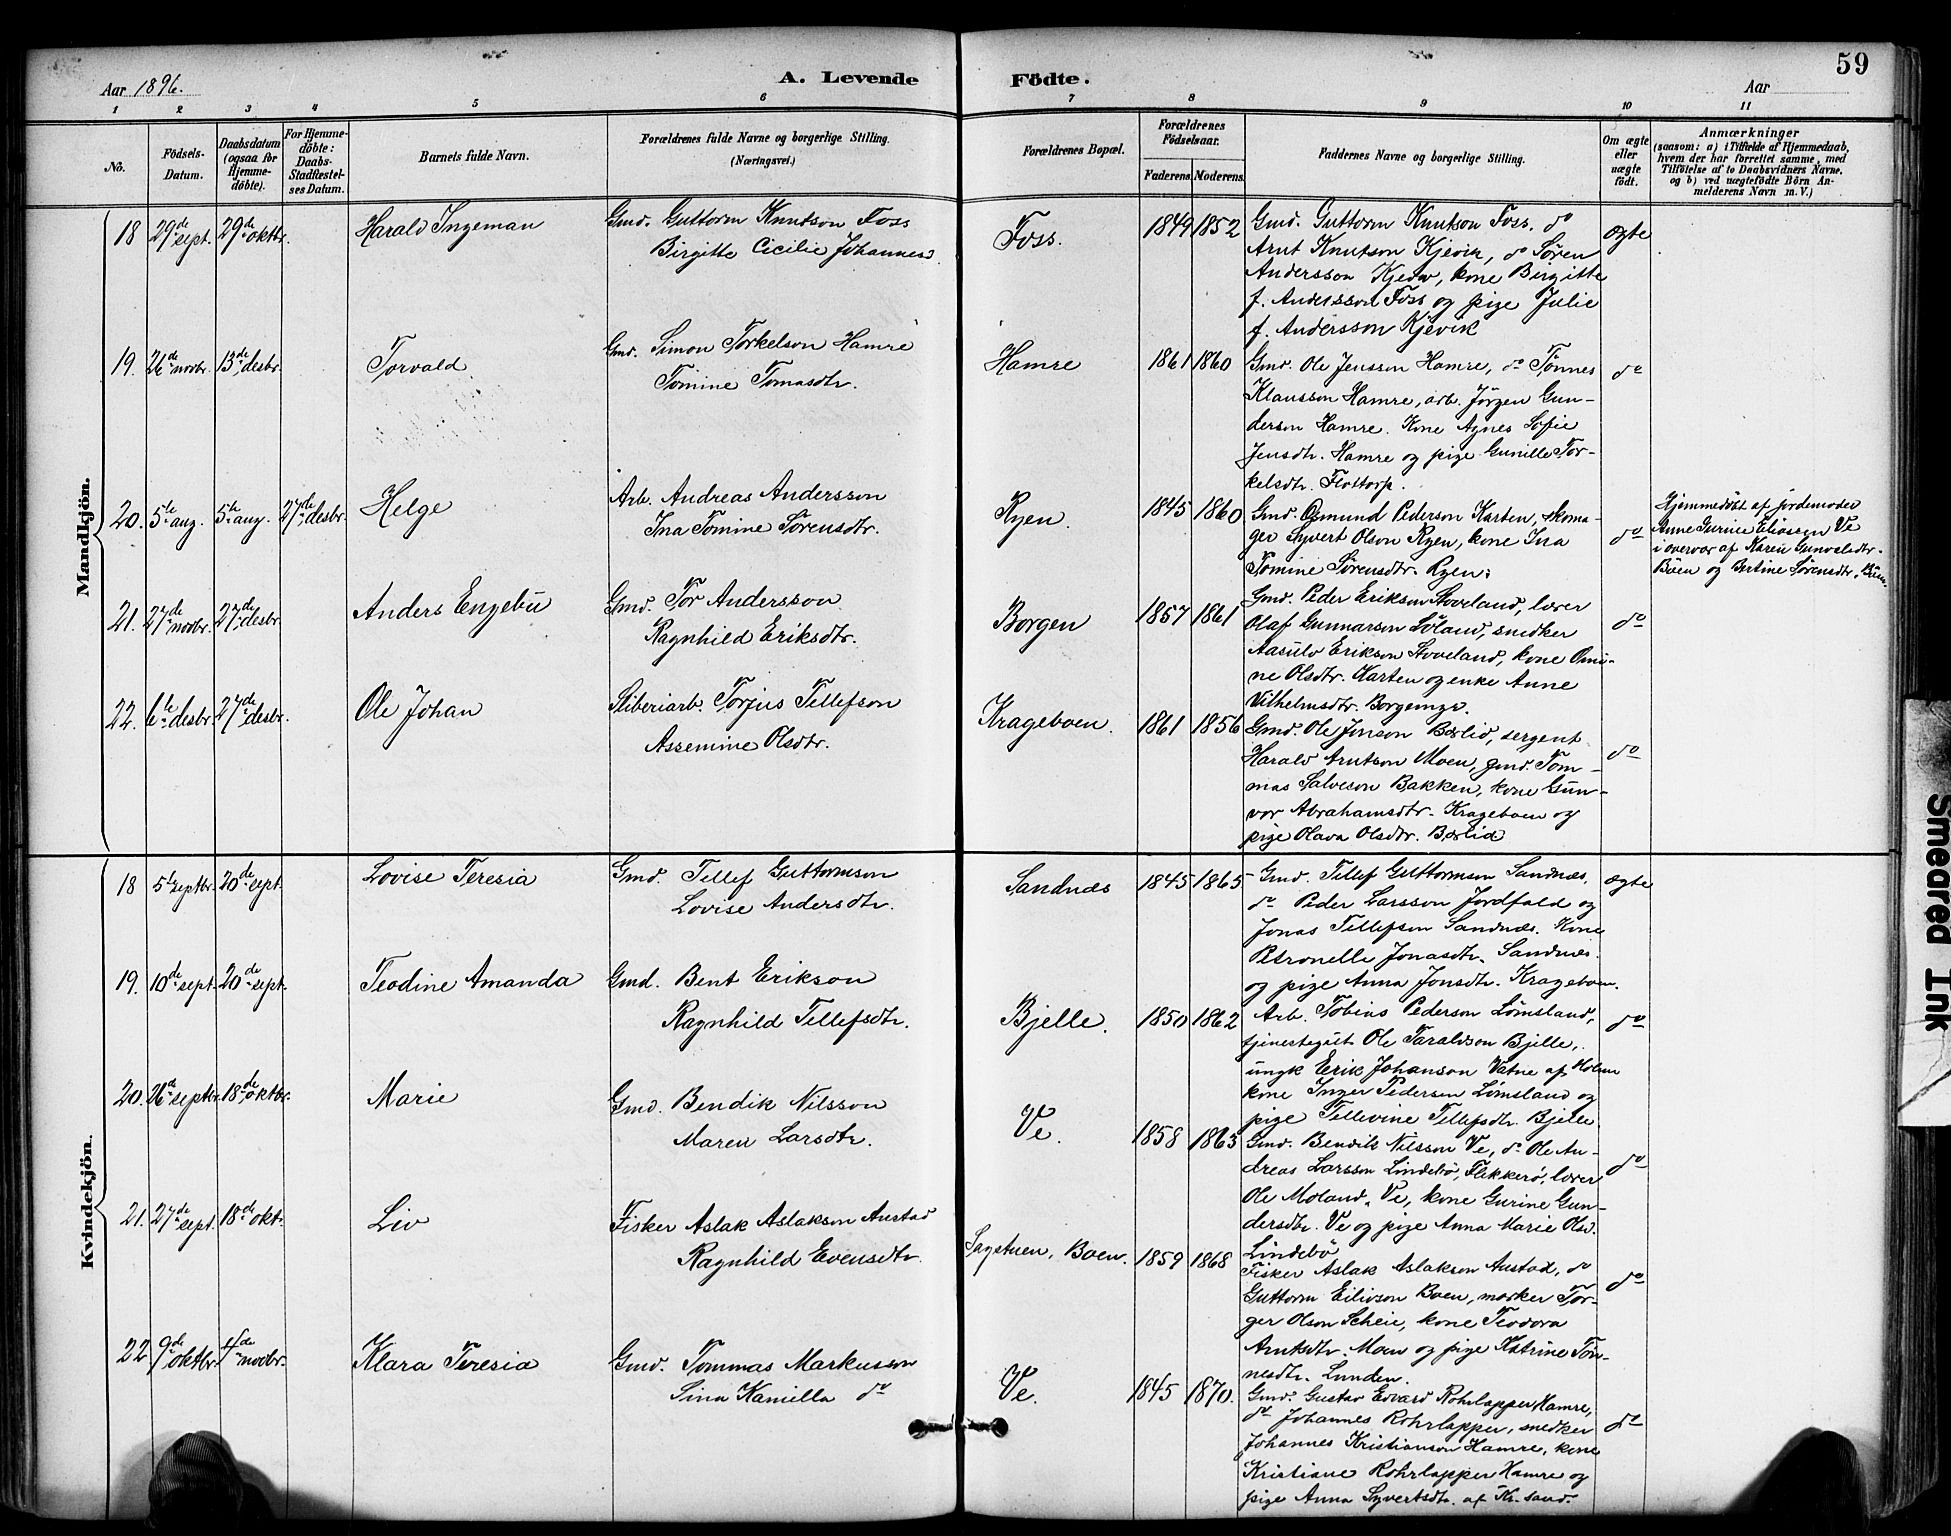 59
Aar 1896. A. Levende Födte. Aar
1 2 3 4 5 6 7 8 9 10 11
No. Födsels-Datum. Daabsdatum (ogsaa for Hjemmedöbte). For Hjemmedöbte: Daabs-Stadfæstelses Datum. Barnets fulde Navn. Forældrenes fulde Navne og borgerlige Stilling. (Næringsvei.) Forældrenes Bopæl. Forældrenes Födselsaar. Faderens. Moderens. Faddernes Navne og borgerlige Stilling. Om ægte eller uægte födt. Anmærkninger (saasom: a) i Tilfælde af Hjemmedaab, hvem der har forrettet samme, med Tilföielse af to Daabsvidners Navne, og b) ved uægtefödte Börn Anmelderens Navn m. V.)
Mandkjön.
18 29de sept. 29de oktbr. Harald Ingeman
Gmd. Guttorm Knutson Foss
Birgitte Cicilie Johannesd.
Foss. 1849 1852
Gmd. Guttorm Knutson Foss, do
Arnt Knutson Kjevik, do Sören
Andersson Kjevik, kone Birgitte
f. Andersson Foss og pige Julie
f. Andersson Kjevik
ægte
19. 26de novbr. 13de desbr. Torvald
Gmd. Simon Torkelson Hamre
Tomine Tomasdtr.
Hamre 1861 1860
Gmd. Ole Jensson Hamre, do Tönnes
Klausson Hamre, arb. Jörgen Gun-
derson Hamre. Kone Agnes Sofie
Jensdtr. Hamre og pige Gunille Tor-
kelsdtr. Flottorp.
do
20. 5te aug. 5te aug. 27de desbr. Helge
Arb. Andreas Andersson
Ina Tomine Sörensdtr.
Ryen. 1845 1860
Gmd. Osmund Pederson Karten, skoma-
ger Syvert Olson Ryen, kone Ina
Tomine Sörensdtr. Ryen.
do
Hjemmedöbt af jordemoder
Anne Gurine Eliassen Ve
i overvær af Karen Gunvaldsdtr.
Büen og Bertine Sörensdtr. Büen.
21. 27de novbr. 27de desbr. Anders Engebü
Gmd. Tor Andersson
Ragnhild Eriksdtr.
Borgen 1857 1861
Gmd. Peder Erikson Stoveland, lærer
Olaf Gunnarson Söland, snedker
Aasulv Erikson Stoveland, kone Omi-
ne Olsdtr. Karten og enke Anne
Vilhelmsdtr. Borgen
do
22. 6te desbr. 27de desbr. Ole Johan
Sliberiarb. Torjus Tellefson
Assemine Olsdtr.
Krageboen. 1861 1856
Gmd. Ole Jonson Bærlid, sergent
Harald Arntson Moen, gmd. Tom-
mas Salveson Bakken, kone Gun-
vor Abrahamsdtr. Krageboen og
pige Olava Olsdtr. Bærlid
do
Kvindekjön.
18 5te septbr. 20de sept. Lovise Teresia
Gmd. Tellef Guttormson
Lovise Andersdtr.
Sandnæs 1845 1865
Gmd. Tellef Guttormsen Sandnæs,
do Peder Larsson Jordfald og
Jonas Tellefsen Sandnæs. Kone
Petronelle Jonasdtr. Sandnæs
og pige Anna Jonsdtr. Krageboen.
ægte
19. 10de sept. 20de sept. Teodine Amanda
Gmd. Bent Erikson
Ragnhild Tellefsdtr.
Bjelle. 1850 1862
Arb. Tobias Pederson Lömsland,
tjenestegut Ole Taraldson Bjelle,
ungk Erik Johanson Vatne af Holum
kone Inger Pedersen Lömsland og
pige Tellevine Tellefsdtr. Bjelle.
do
20. 26de septbr. 18de oktbr. Marie
Gmd. Bendik Nilsson
Maren Larsdtr.
Ve. 1858 1863
Gmd. Bendik Nilsson Ve, do Ole An-
dreas Larsson Lindebö, Flekkerö, lærer
Ole Moland, Ve, kone Gurine Gun-
dersdtr. Ve og pige Anna Marie Olsd.
Lindebö
do
21. 27de sept. 18de okt. Liv
Fisker Aslak Aslakson Austad
Ragnhild Evensdtr.
Sagstuen, Boen. 1859 1868
Fisker Aslak Aslakson Austad, do
Guttorm Eilivson Boen, mærker Tor-
ger Olson Scheie, kone Teodora
Arntsdtr. Moen og pige Katrine Tön-
nesdtr. Lunden.
do
22 9de oktbr. 4de novbr. Klara Teresia
Gmd. Tommas Markusson
Sina Kamilla do
Ve. 1845 1870.
Gmd. Gustav Edvard Rohrlapper Hamre,
do Johannes Rohrlapper, snedker
Johannes Kristianson Hamre, kone
Kristiane Rohrlapper Hamre og
pige Anna Syvertsdtr. af Kr.sand.
do
Smeared Ink